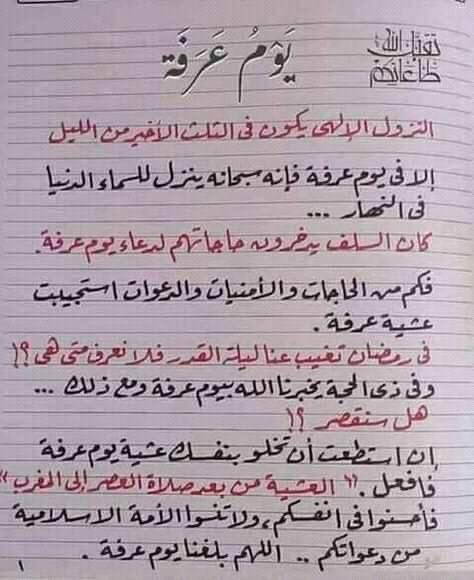 يَوْمُ عَرَفَة
تقبل الله
طاعاتكم
النزول الإلهى يكون فى الثلث الأخير من الليل
إلا فى يوم عرفة فإنه سبحانه ينزل للسماء الدنيا
فى النهار ...
كان السلف يدخرون حاجاتهم لدعاء يوم عرفة.
فكم من الحاجات والأمنيات والدعوات استجيبت
عشية عرفة.
فى رمضان تغيب عنا ليلة القدر فلا نعرف متى هى ؟!
وفى ذى الحجة يخبرنا الله بيوم عرفة ومع ذلك ...
هل سنقصر ؟!
إن استطعت أن تخلو بنفسك عشية يوم عرفة
فافعل. " العشية من بعد صلاة العصر إلى المغرب "
فأحسنوا فى أنفسكم، ولا تنسوا الأمة الاسلامية
من دعواتكم .. اللهم بلغنا يوم عرفة .
١